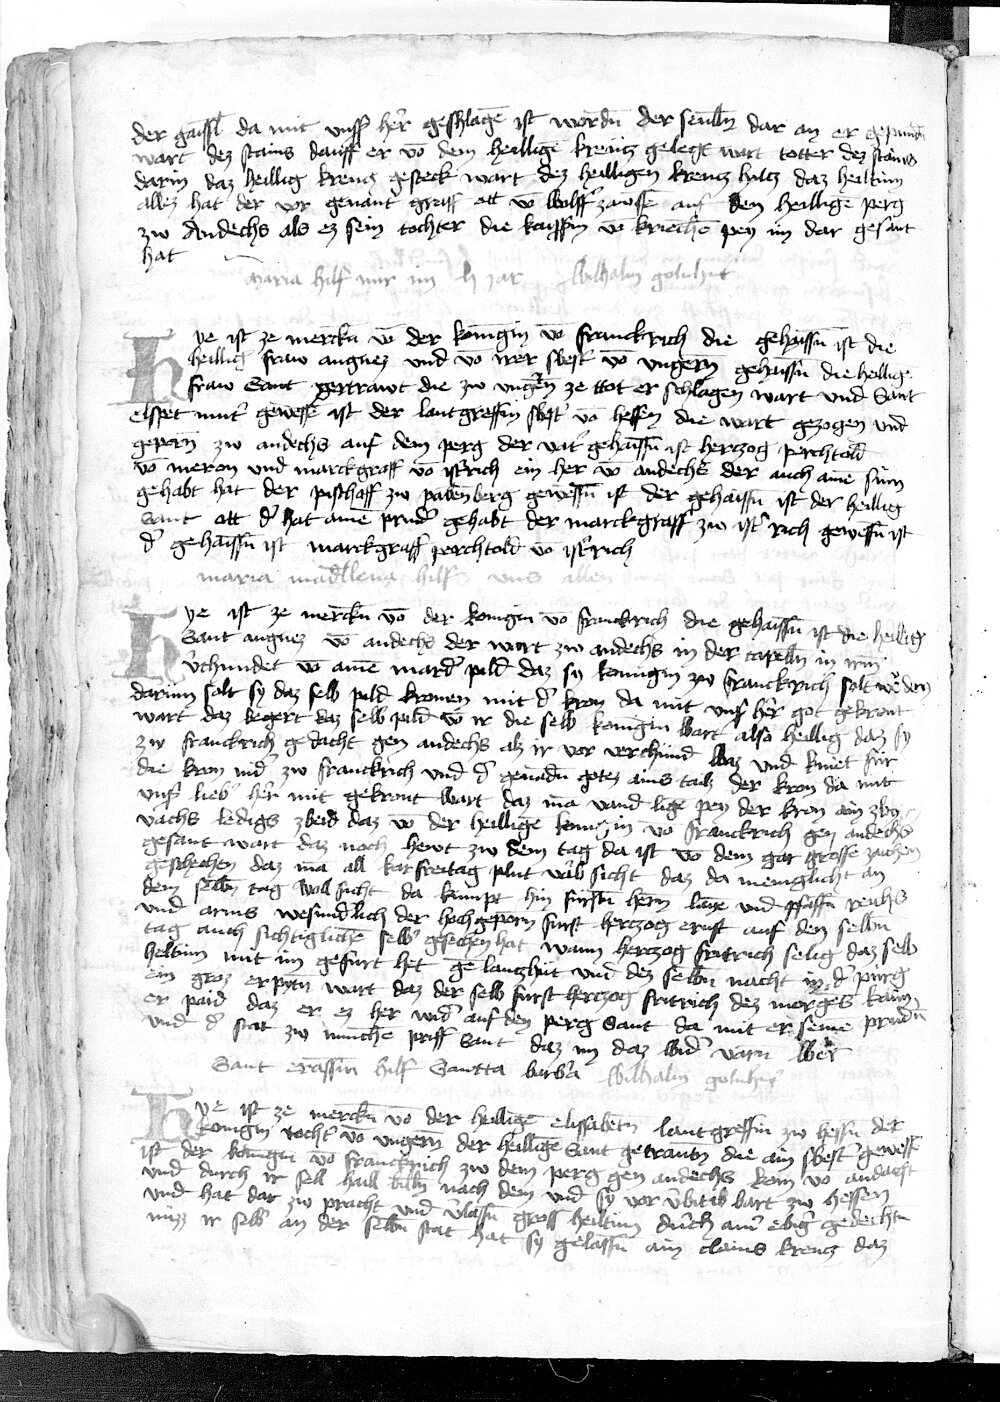 der gaissl da mit unsſ her̄ geschlagē ist wordn̄ der seulln̄ dar an er gepundn̄
wart dez stains dauff er vō dem heilligē kreutz gelegt wart totter dez stains
darin daz heillig kreutz gesteckt wart dez heilligen kreutz holtz daz heiltūm
allez hat der vor genant graff ott vō wolffrzausſē auf den heilligē perg
zw Andechs als ez sein tochter die kaissrin vō kriechē pey im dar gesant
hat
maria hilf mir im h jar Wilhalm
Hye ist ze merckn̄ vō der konigin vō franckrich die gehaissn̄ ist die
heillig fraw angnez und vō irer swest̄ vō ungern̄ gehaissn̄ die heillige
fraw Sant gertrawt die zw ungern̄ ze ttot er schlagen wart und Sant
elspet mut̄ gewesſē ist der lantgreffin swest̄ vō hessen die wart gezogen und̄
geporn̄ zw andechs auf dem perg der vat̄ gehaissn̄ ist hertzog perchtold̄
vō meron und marckgraff vō istrich ein her vō andechs der auch ainē sūn
gehabt hat der pischaff zw pabenberg gewessn̄ ist der gehaissn̄ ist der heillig
Sant ott d̄ hat ainē prud̄ gehabt der marckgraff zw ist̄ rich gewessn̄ ist
d̄ gehaissn̄ ist marckgraff perchtold vō istrich
maria madllena hilf uns allen
Hye ist ze merckn̄ vō der konigin vō franckrich die gehaissn̄ ist die heillig
Sant angnez vō andechs der wart zw andechs in der capelln̄ in irm
v̄chundet vō ainē mard̄ pild daz sy konigin zw franckrich solt werden
darūm solt sy daz selb pild kronen mit d̄ kron da mit unsſ her̄ got gekront
wart daz begert daz selb pild vō ir die selb konigin wart also heillig daz sy
zw franckrich gedacht gen andechs alz ir vor verchünd waz und kniet für
die kron nid̄ zw franckrich und d̄ genadn̄ gotez ains tailz der kron da mit
unsſ lieb̄ her̄ mit gekront wart daz mā vand lige pey der kron ain zbey
vachs ledigs zbeid daz vō der heilligē konigin vō franckrich gen andechs
gesant wart daz noch hewt zw dem tag da ist vō dem gar grosſe zaichen
geschechen daz mā all karfreitag plut varb sicht daz da meniglicht an
dem selbn̄ tag woll sicht da kumpt hin fürstn̄ hern̄ lauge und pfaffn̄ reichs
und arms wesundlich der hochgeporn fürst hertzog ernst auf den selbn̄
tag auch sichtiglichē selb̄ gesechen hat wann hertzog fritrich selig daz selb
heltūm mit im gefürt het gē lantzhüt und dez selbn̄ nacht in d̄ pürg
ein groz erpytn̄ wart daz der selb fürst hertzog fritrich dez morgēs kaum
er paid daz er ez her wid̄ auf den perg Sant da mit er seinē prudn̄
und d̄ stat zw münchē priff Sant daz im daz wid̄ varn wer
Sant erassm̄ hilf Sanctta barb̄a Wilhalm
Hye ist ze merckn̄ vō der heilligē elissabetn̄ lantgreffin zw hessn̄ der
konigin tocht̄ vō ungern der heilligē Sant getrautn̄ die ain swest̄ gewesſt
ist der konigin vō franckrich zw dem perg gen andechs kom vō andacht
und durch ir sell haill willn̄ nach dem und̄ sy vor v̄bitib wart zw hessen
und hat dar zw pracht und v̄lassn̄ gross heiltūm durch aine ebige gedechtn̄
nüzz ir selb̄ an der selbn̄ stat hat sy gelassn̄ ain clains kreutz daz